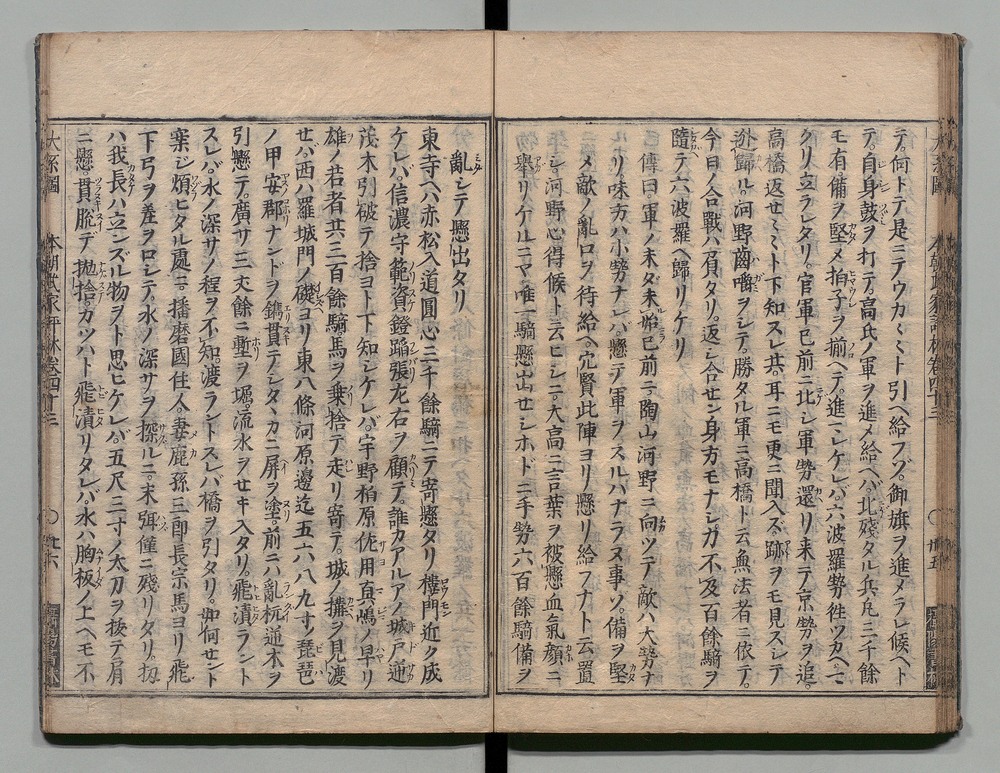 テ。何トテ是ニテウカミミト引ヘ給フゾ。御旗ヲ進メラレ候ヘト
テ。自身鼓ヲ打テ。高氏ノ軍ヲ進メ給ヘバ。北殘タル兵凡三千餘
モ有備ヲ堅メ拍子ヲ揃ヘテ。進ミケレバ。六波羅勢徃ツカヘヘ
クリ立ラレタリ。官軍已前ニ北シ軍勢還リ来テ京勢ヲ追。
高橋返せミミト下知スレ共。耳ニモ更ニ聞入ズ。跡ヲモ見ズシテ
迯歸ル。河野齒嚼ヲシテ。勝タル軍ニ高橋ト云無法者ニ依テ。
今日ノ合戰ハ負タリ。返シ合せン身方モナシ。力不及百餘騎ヲ
隨テ六波羅ヘ歸リケリ
傳曰軍ノ未ダ未始已前ニ。陶山河野ニ向ツテ。敵ハ大勢ナ
リ。味方ハ小勢ナレバ。懸テ軍ヲスルハナラヌ事ソ。備ヲ堅
メ敵ノ亂口ヲ待給ヘ。穴賢此陣ヨリ懸リ給フナト云置
シ。河野心得候ト云ヒシニ。大高ニ言葉ヲ被懸血氣顔ニ
擧リケルニマ。唯一騎懸出せシホドニ手勢六百餘騎備ヲ
亂シテ懸出タリ
東寺ヘハ赤松入道圓心三千餘騎ニテ寄懸タリ樓門近ク成
ケレバ。信濃守範資鐙蹈張左右ヲ顧テ。誰カアルアノ城戸逆
茂木引破テ捨ヨト下知シケレバ。宇野柏原佐用眞嶋ノ早リ
雄ノ若者共三百餘騎馬ヲ乗捨テ走リ寄テ。城ノ搆ヲ見渡
せバ。西ハ羅城門ノ礎ヨリ東八條河原邊迄五六八九寸ノ琵琶
ノ甲安郡ナンドヲ鐫貫テシタヽカニ屏ヲ塗。前ニハ亂杭逆木ヲ
引懸テ廣サ三丈餘ニ塹ヲ堀流水ヲせキ入タリ。飛漬ラント
スレバ。水ノ深サノ程ヲ不知。渡ラントスレバ橋ヲ引タリ。如何せント
案シ煩ヒタル處ニ。播磨國住人妻鹿孫三郎長宗馬ヨリ飛
下弓ヲ差ヲロシテ。水ノ深サヲ探ルニ。末弭僅ニ殘リタリ。扨
ハ我長ハ立ンズル物ヲト思ヒケレバ五尺三寸ノ太刀ヲ抜テ肩
ニ懸。貫脱デ抛捨。カツハト飛漬リタレバ。水ハ胸板ノ上ヘモ不